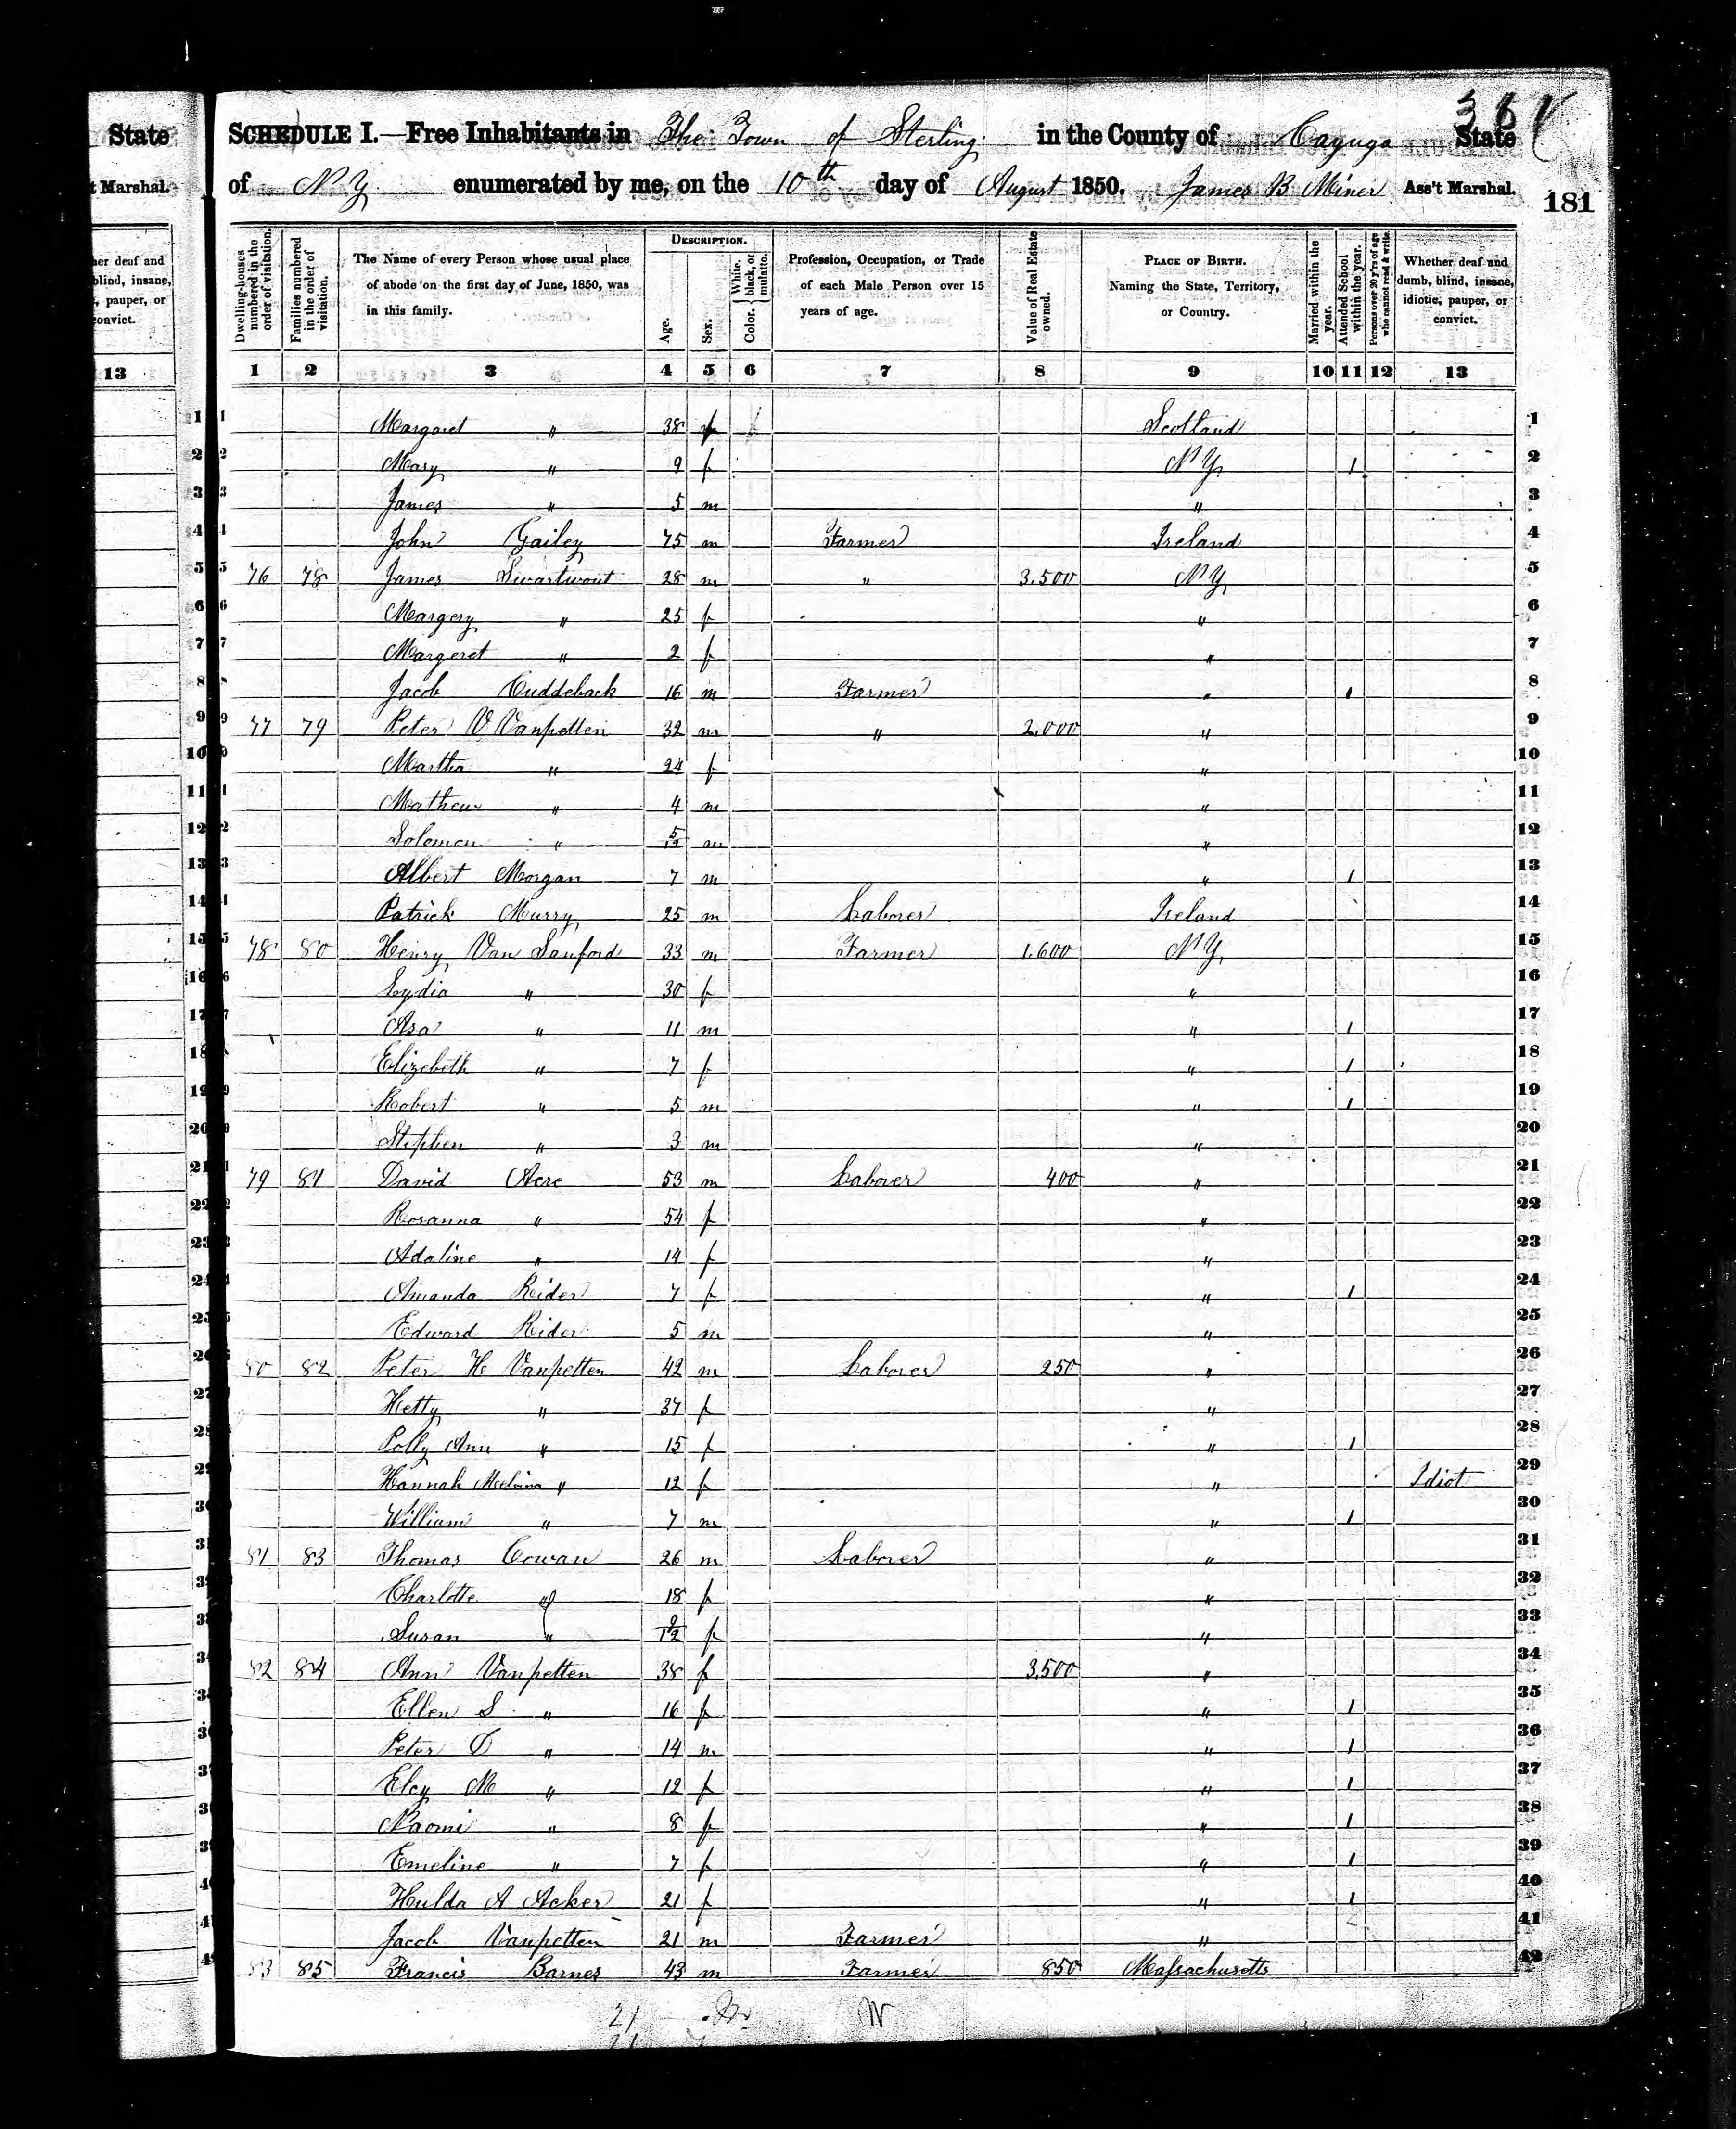 38
State
SCHEDULE I.—Free Inhabitants in The Town of Sterling in the County of Cayuga State
t Marshal.
of N Y enumerated by me, on the 10th day of August 1850. James B Miner Ass't Marshal.
181
her deaf and
blind, insane,
, pauper, or
convict.
13
Dwelling-houses numbered in the order of visitation.
Families numbered in the order of visitation.
The Name of every Person whose usual place of abode on the first day of June, 1850, was in this family.
DESCRIPTION.
Age.
Sex.
Color. { White, black, or mulatto.
Profession, Occupation, or Trade of each Male Person over 15 years of age.
Value of Real Estate owned.
PLACE OF BIRTH. Naming the State, Territory, or Country.
Married within the year.
Attended School within the year.
Persons over 20 y'rs of age who cannot read & write.
Whether deaf and dumb, blind, insane, idiotic, pauper, or convict.
1 2 3 4 5 6 7 8 9 10 11 12 13
1 Margaret " 38 f Scotland 1
2 Mary " 9 f N Y 1 2
3 James " 5 m " 3
4 John Gailey 75 m Farmer Ireland 4
5 76 78 James Swartwout 28 m " 3.500 N Y 5
6 Margery " 25 f " 6
7 Margeret " 2 f " 7
8 Jacob Cuddeback 16 m Farmer " 1 8
9 77 79 Peter V Vanpetten 32 m " 2.000 " 9
10 Martha " 24 f " 10
11 Mathew " 4 m " 11
12 Solomon " 5/12 m " 12
13 Albert Morgan 7 m " 1 13
14 Patrick Murry 25 m Laborer Ireland 14
15 78 80 Henry Van Sanford 33 m Farmer 1.600 N Y 15
16 Lydia " 30 f " 16
17 Asa " 11 m " 1 17
18 Elizebeth " 7 f " 1 18
19 Robert " 5 m " 1 19
20 Stephen " 3 m " 20
21 79 81 David Acre 53 m Laborer 400 " 21
22 Rosanna " 54 f " 22
23 Adaline " 14 f " 23
24 Amanda Rider 7 f " 1 24
25 Edward Rider 5 m " 25
26 80 82 Peter H Vanpetten 42 m Laborer 250 " 26
27 Hetty " 37 f " 27
28 Polly Ann " 15 f " 1 28
29 Hannah Melvina " 12 f " Idiot 29
30 William " 7 m " 1 30
31 81 83 Thomas Cowan 26 m Laborer " 31
32 Charlotte " 18 f " 32
33 Susan " 9/12 f " 33
34 82 84 Ann Vanpetten 38 f 3.500 " 34
35 Ellen S " 16 f " 1 35
36 Peter D " 14 m " 1 36
37 Elcy M " 12 f " 1 37
38 Naomi " 8 f " 1 38
39 Emeline " 7 f " 1 39
40 Hulda A Acker 21 f " 1 40
41 Jacob Vanpetten 21 m Farmer " 41
42 83 85 Francis Barnes 43 m Farmer 850 Massachusetts 42
21